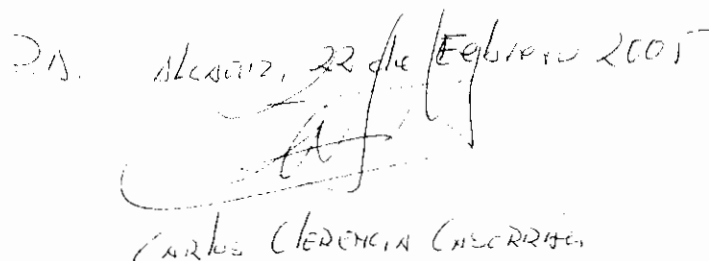 P.A. Alcañiz, 22 de Febrero 2005
Carlos Clerencia